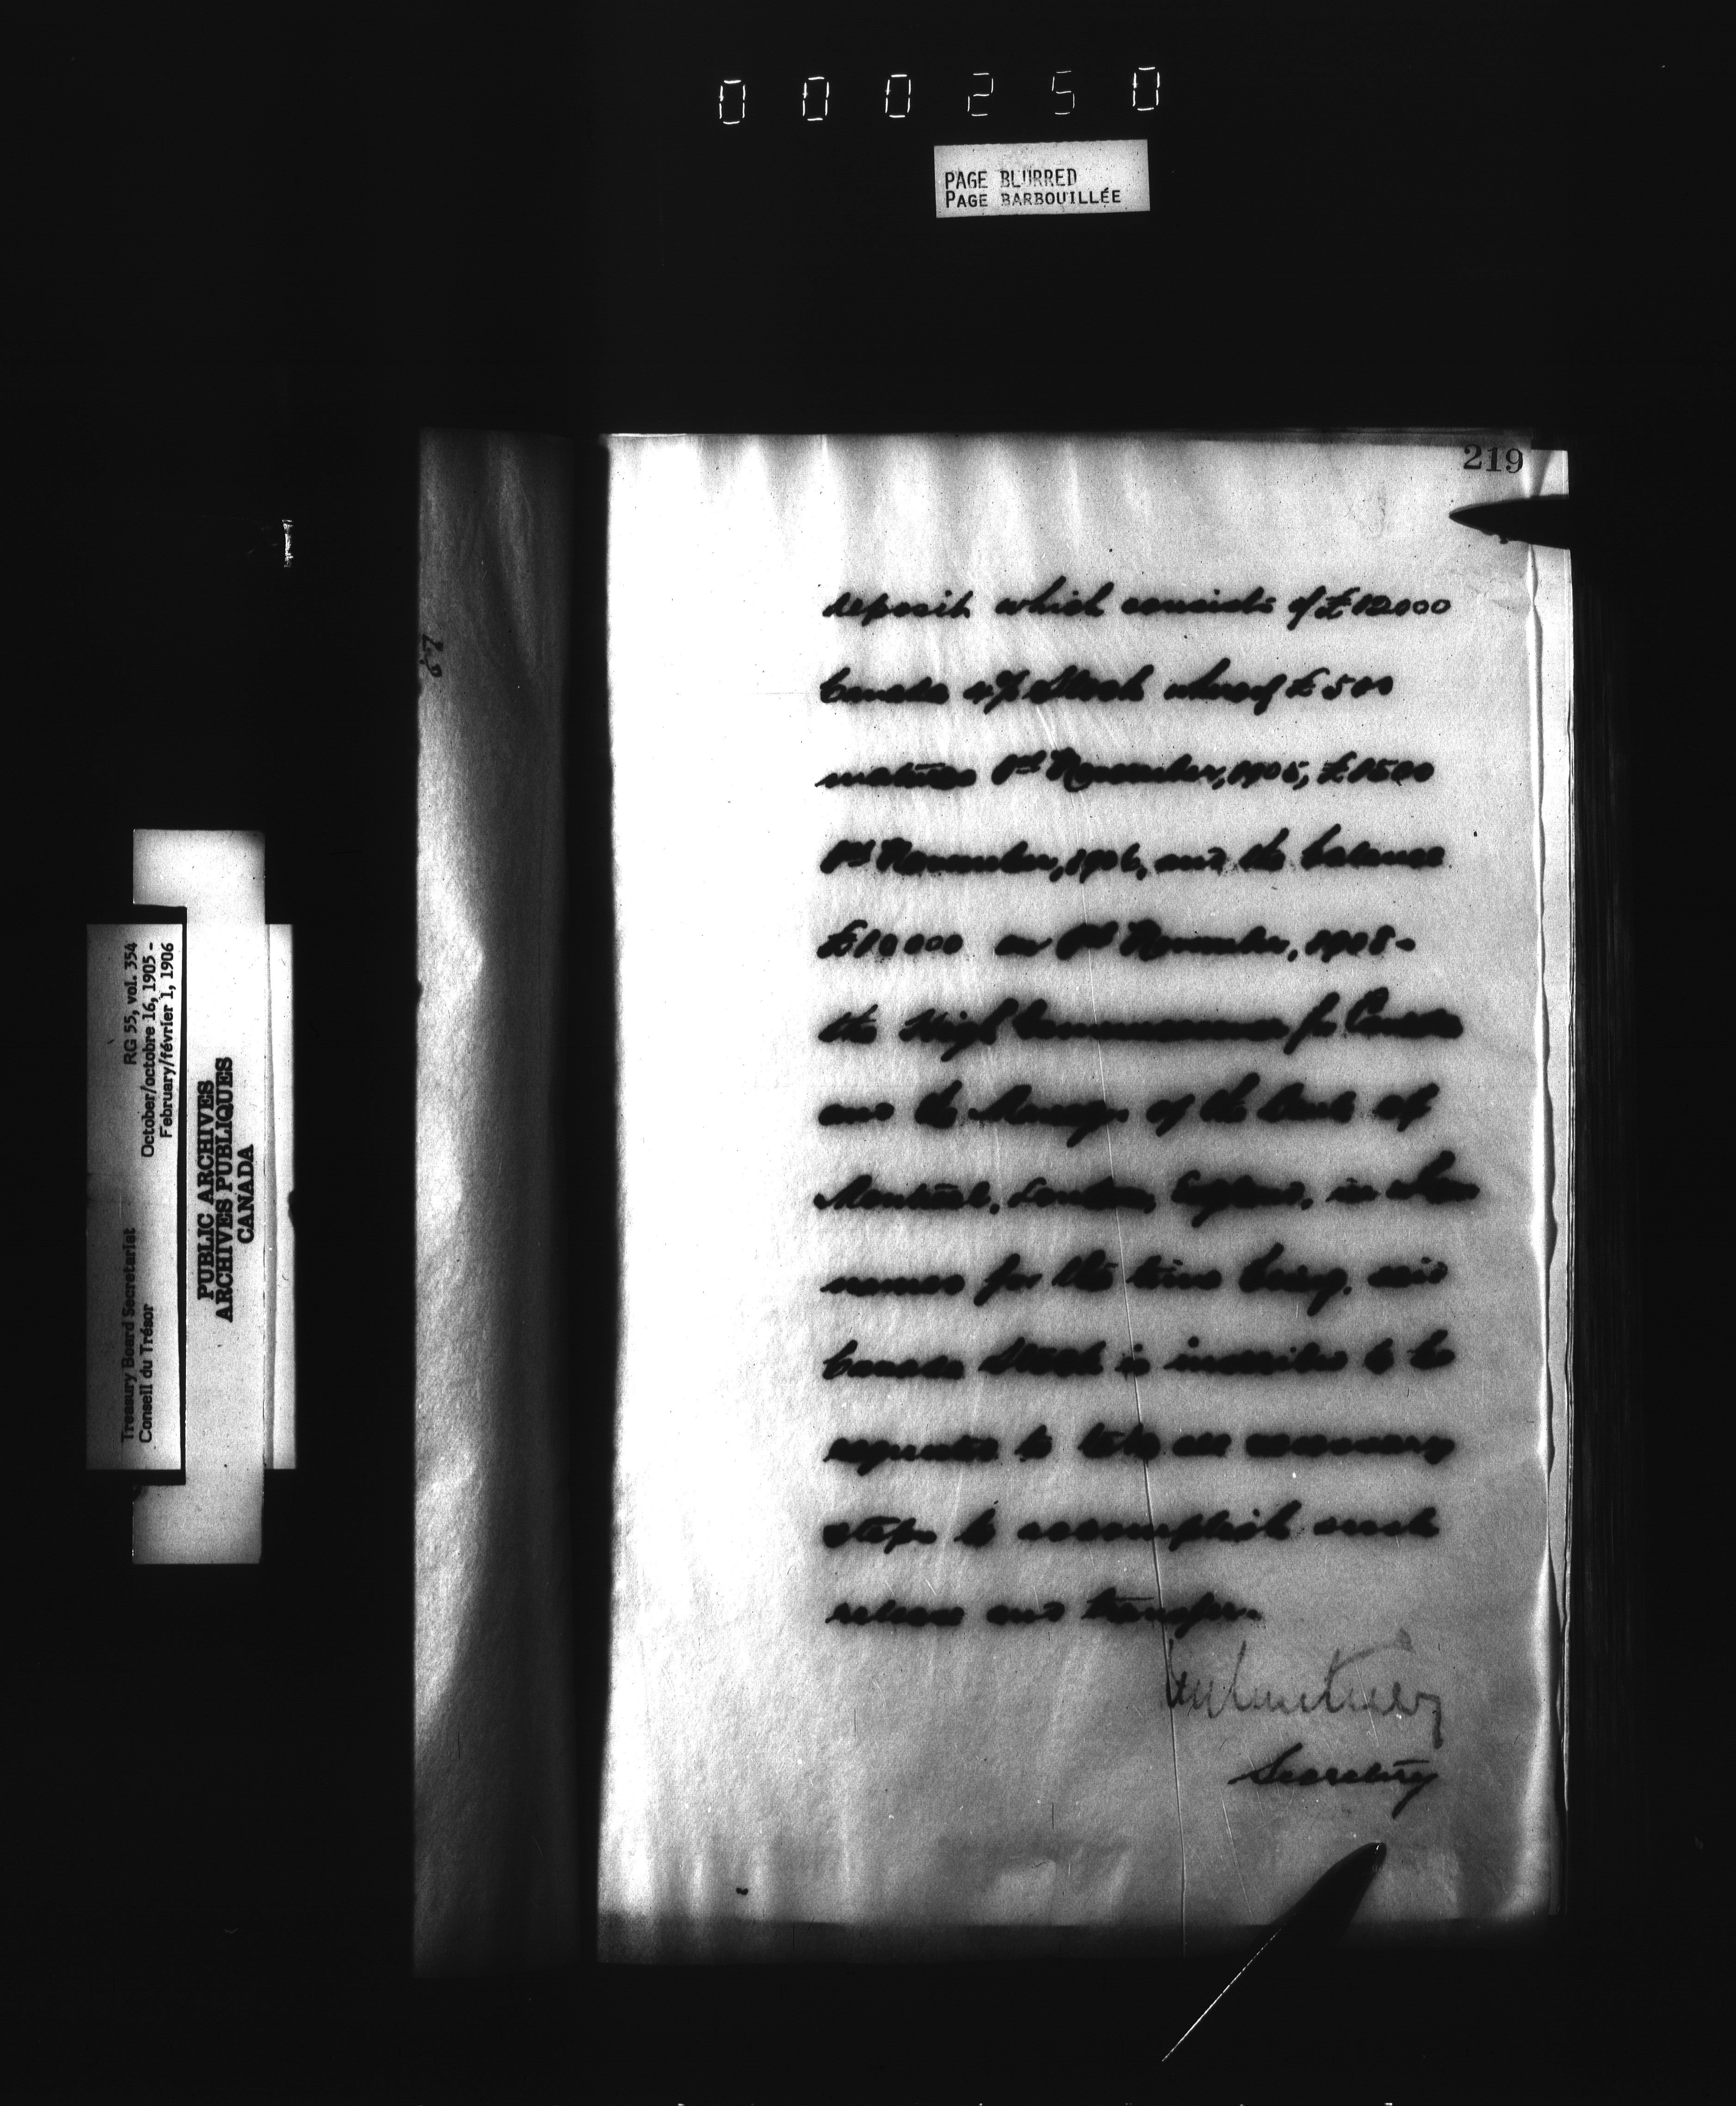 000250
PAGE BLURRED
PAGE BARBOUILLÉE
219
deposit which consists of £12000
Canada 4% Stock whereof £500
matures 1st November, 1905, £1500
1st November, 1906, and the balance
£10000 on 1st November, 1908-
the High Commissioner for Canada
and the Manager of the Bank of
Montreal, London, England, in whose
names for the time being, said
Canada Stock is inscribed to be
requested to take all necessary
steps to accomplish such
release and transfer.
Secretary
Treasury Board Secretariat RG 55, vol. 354
Conseil du Trésor October/octobre 16, 1905 -
February/février 1, 1906
PUBLIC ARCHIVES
ARCHIVES PUBLIQUES
CANADA